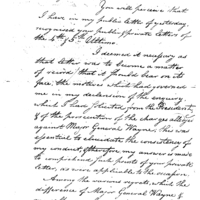 You will perceive that
I have in my public letter of yesterday
answered your public & private letters of
the 4th & 5th Ultimo.
I deemed it necessary as
that letter was to become a matter
of record, that it should bear on its
face, the motives which had governed
me in my declension of the enquiry
which I had solicited from the President,
& of the prosecution of the charges alledged
against Major General Wayne. This was
essential to elucidate the consistency of
my conduct, therefore my answer is made
to comprehend such points of your private
letter, as were applicable to the occasion.
Among the various regrets, which the
difference of Major General Wayne &